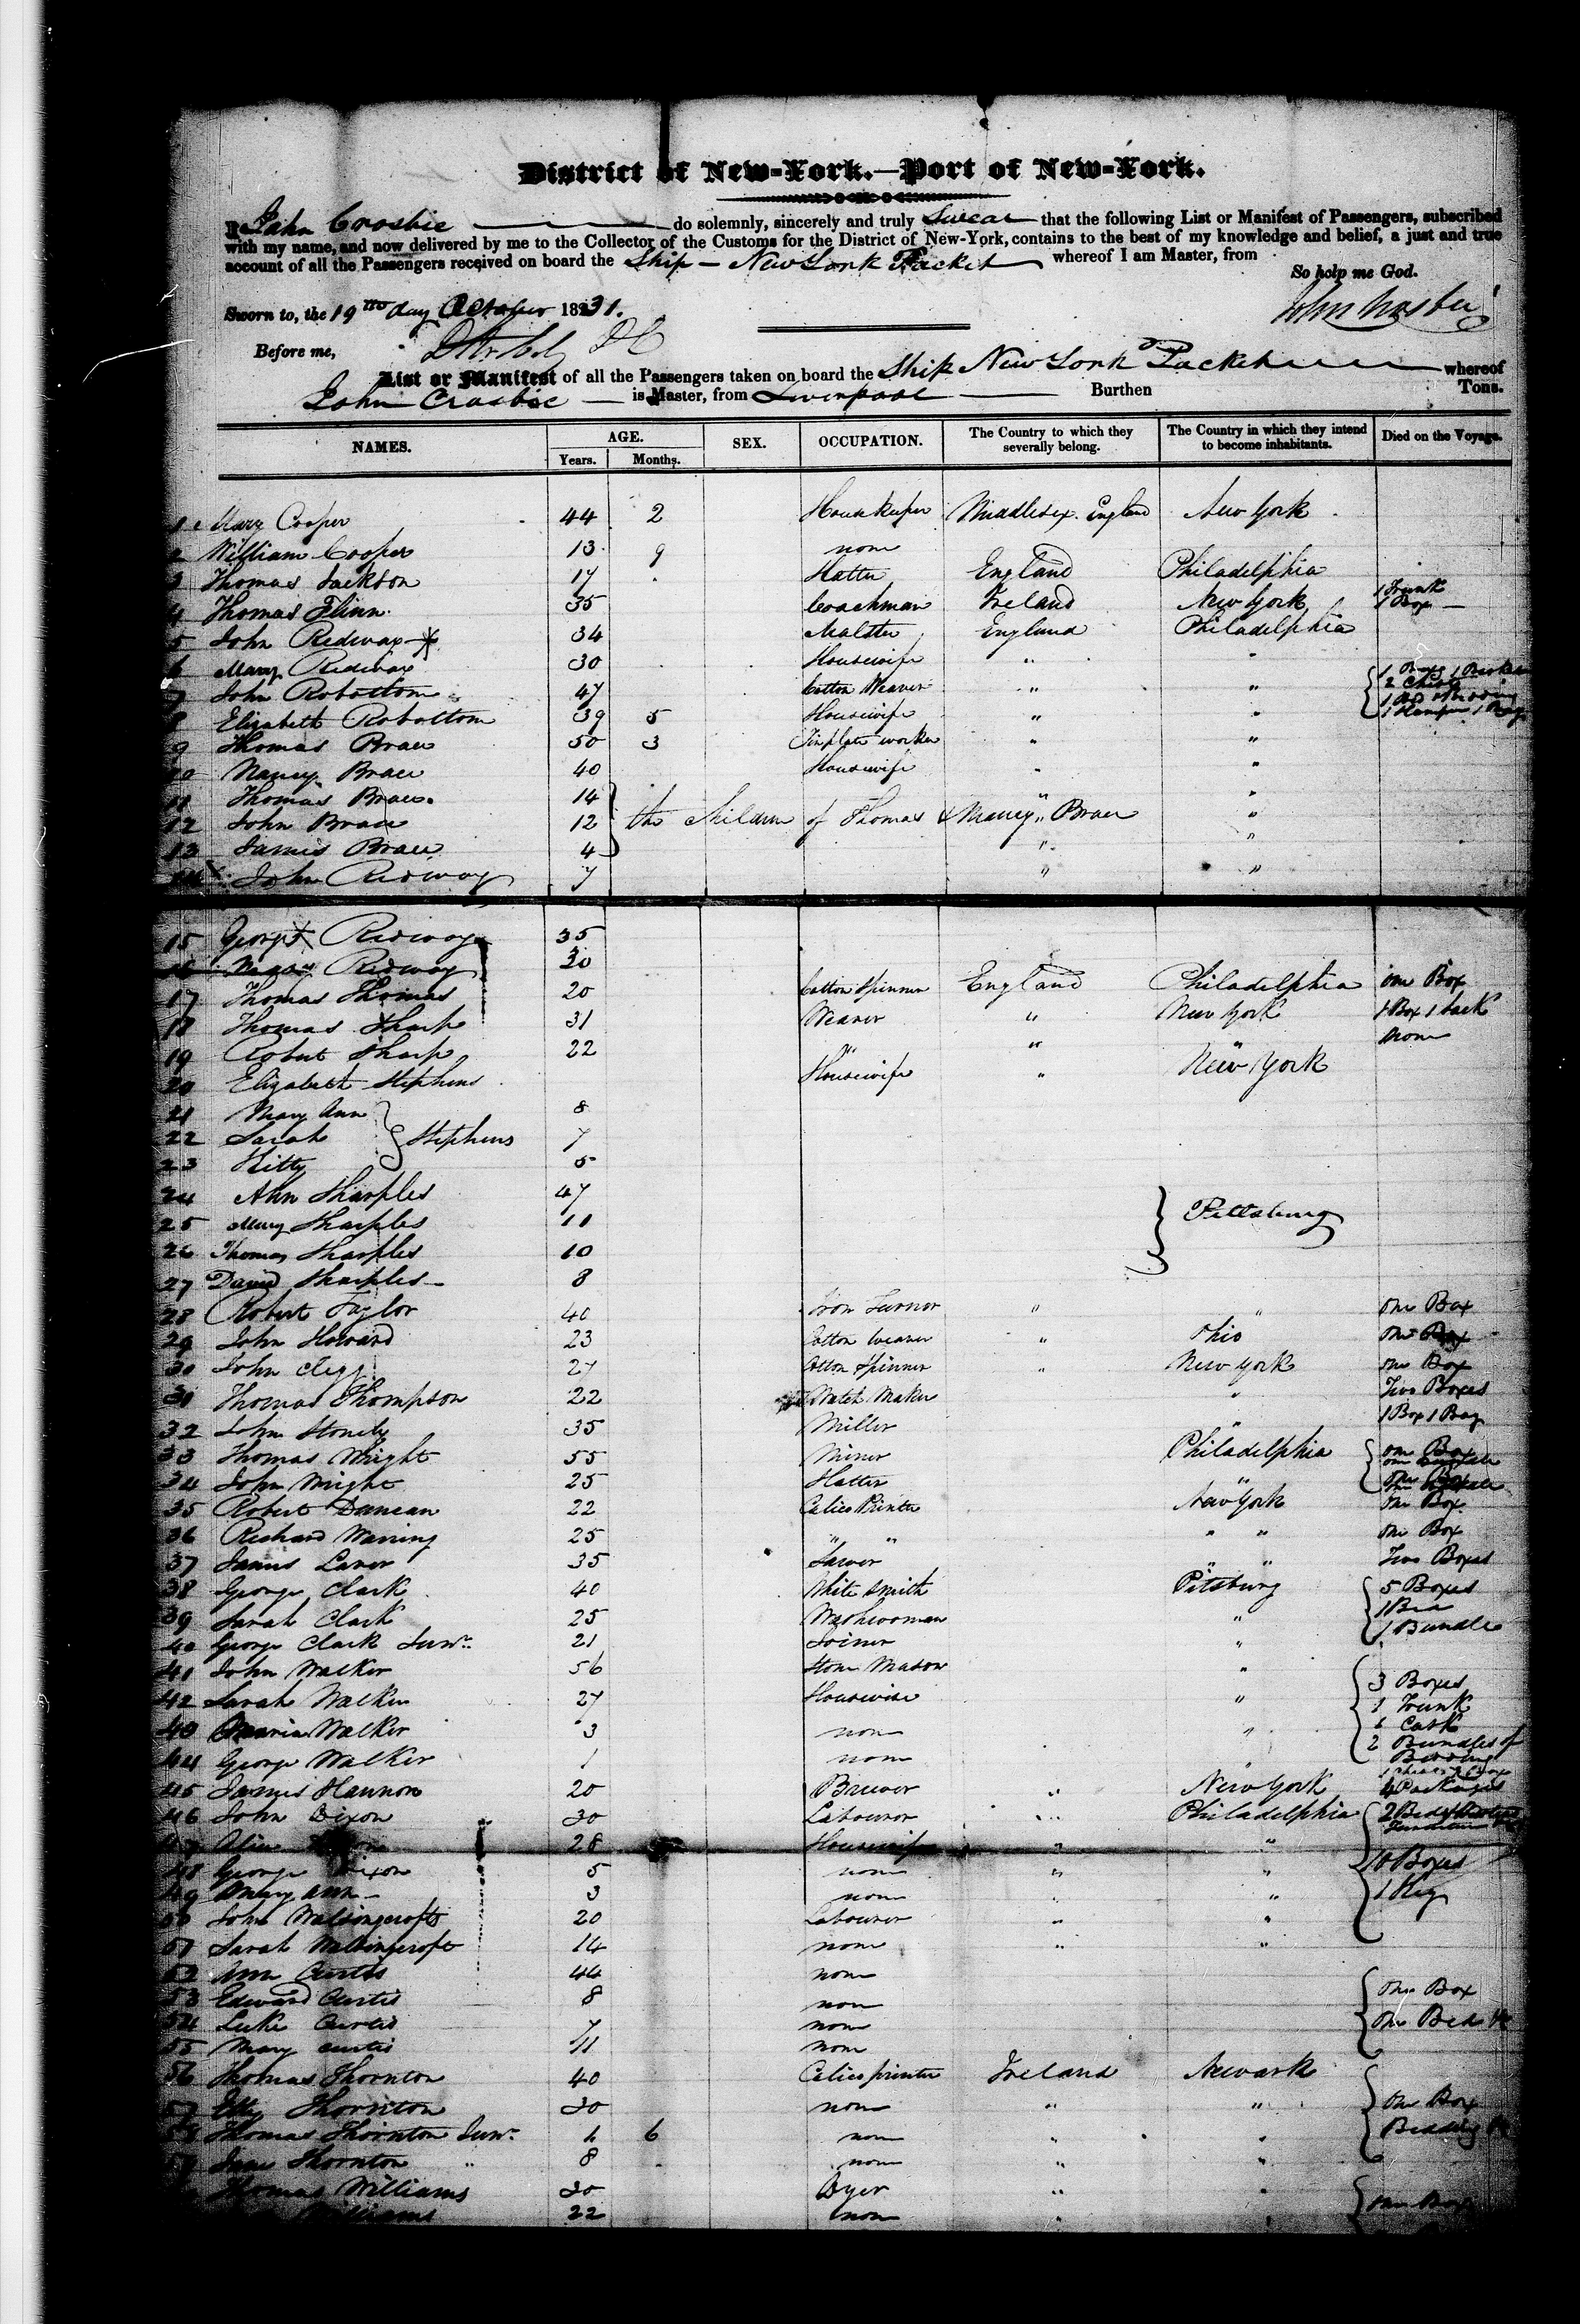 District of New-York.—Port of New-York.
I, John Crosbie do solemnly, sincerely and truly Swear that the following List or Manifest of Passengers, subscribed
with my name, and now delivered by me to the Collector of the Customs for the District of New-York, contains to the best of my knowledge and belief, a just and true
account of all the Passengers received on board the Ship - New York Packet whereof I am Master, from
So help me God.
Sworn to, the 19 day October 1831.
John Crosbie
Before me,
List or Manifest of all the Passengers taken on board the Ship New York Packet whereof
John Crosbie is Master, from Liverpool Burthen Tons.
NAMES. AGE. SEX. OCCUPATION. The Country to which they severally belong. The Country in which they intend to become inhabitants. Died on the Voyage.
Years. Months.
1 Mary Cooper 44 2 Housekeeper Middlesex England New York
2 William Cooper 13 9 none
3 Thomas Jackson 17 Hatter England Philadelphia
4 Thomas Flinn 35 Coachman Ireland New York 1 Trunk 1 Box
5 John Redway 34 Malster England Philadelphia
6 Mary Redway 30 Housewife " "
7 John Robottom 47 Cotton Weaver " "
8 Elizabeth Robottom 39 5 Housewife " "
9 Thomas Brace 50 3 Tinplate worker " "
10 Nancy Brace 40 Housewife " "
11 Thomas Brace 14 " "
12 John Brace 12 the children of Thomas & Nancy Brace "
13 James Brace 4 " "
14 John Ridway 7 " "
15 George Ridway 35
16 Ridway 30
17 Thomas Thomas 20 Cotton Spinner England Philadelphia one Box
18 Thomas Sharp 31 Weaver " New York 1 Box 1 Sack
19 Robert Sharp 22 " " " none
20 Elizabeth Stephens Housewife " New York
21 Mary Ann 8
22 Sarah Stephens 7
23 Kitty 5
24 Ann Sharples 47
25 Mary Sharples 11 Pittsburg
26 Thomas Sharples 10
27 David Sharples 8
28 Robert Taylor 40 Iron Turner " " one Box
29 John Howard 23 Cotton weaver " Ohio one
30 John Clegg 27 Cotton Spinner " New York one Box
31 Thomas Thompson 22 Watch Maker " Two Boxes
32 John 35 Miller " 1 Box 1 Bag
33 Thomas Wright 55 Miner Philadelphia one Box
34 John Wright 25 Hatter " one Box
35 Robert Duncan 22 Calico Printer New York one Box
36 Richard Warring 25 " " " " one Box
37 James Laver 35 " " Two Boxes
38 George Clark 40 White Smith Pitsburg 5 Boxes
39 Sarah Clark 25 Washwoman " 1 Bed
40 George Clark Junr. 21 Joiner " 1 Bundle
41 John Walker 56 Stone Mason "
42 Sarah Walker 27 Housewise " 3 Boxes
43 Maria Walker 3 none " 1 Trunk 1 Cask
44 George Walker 1 none " 2 Bundles of Bedding
45 James Hannon 20 Brewer " New York 4 Packages
46 John Dixon 30 Labourer " Philadelphia
47 Alice 28 Housewife " "
48 George Dixon 5 none " " 10 Boxes
49 Mary Ann 3 none " " 1 Keg
50 John Walsingcroft 20 Labourer " "
51 Sarah Walsingcroft 14 none " "
52 Ann Curtis 44 none
53 Edward Curtis 8 none one Box
54 Luke Curtis 7 none one Bed
55 Mary Curtis 11 none
56 Thomas Thornton 40 Calico printer Ireland Newark
57 Thornton 30 none " " one Box
58 Thomas Thornton Junr. 1 6 none " " Bedding
59 Jane Thornton 8 none " "
Thomas Williams 30 Dyer " "
Williams 22 none " " one Box